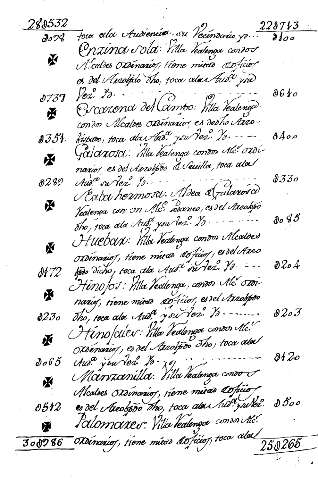 288532 228713
toca ala Audiencia su Vecindario ys.. 8400
Enzina sola: Villa Realenga con dos
Alcaldes ordinarios, tiene mitad de oficios
es del Arzobispado dho, toca ala Audª. y su
Vezº. Ys. 8640
8737
Escazena del Campo: Villa Realenga
con dos Alcaldes ordinarios, es de dho Arzo-
bispado, toca ala Audª. y su Vezº. Ys. 8400
8354
Galarosa: Villa Realenga con Alcª. ordi-
narios, es del Arzobispado de Sevilla, toca ala
Audª. su Vezº. Ys. 8330
8289
Mata hermosa: Aldea de Galarosa
Realenga con un Alcª. Pedaneo, es del Arzobispado
dho, toca ala Audª. y su Vezº. Ys. 8085
Huebar: Villa Realenga con dos Alcaldes
ordinarios, tiene mitad de oficios, es del Arzo-
bispado dicho, toca ala Audª. su Vezº. Ys. 8204
8172
Hinojos: Villa Realenga, con dos Alcª. ordi-
narios, tiene mitad de oficios, es del Arzobispado
8230 dho, toca ala Audª. y su Vezº. Ys. 8203
Hinojales: Villa Realenga con dos Alcª.
ordinarios, es del Arzobispado dho, toca ala
8065 Audª. y su Vezº. Ys. 8120
Manzanilla: Villa Realenga con dos
Alcaldes ordinarios, tiene mitad de oficios
8512 es del Arzobispado dho, toca ala Audª. y su Vezº. 8500
Palomares: Villa Realenga con dos Alcª.
308986 ordinarios, tiene mitad de oficios, toca ala 258265